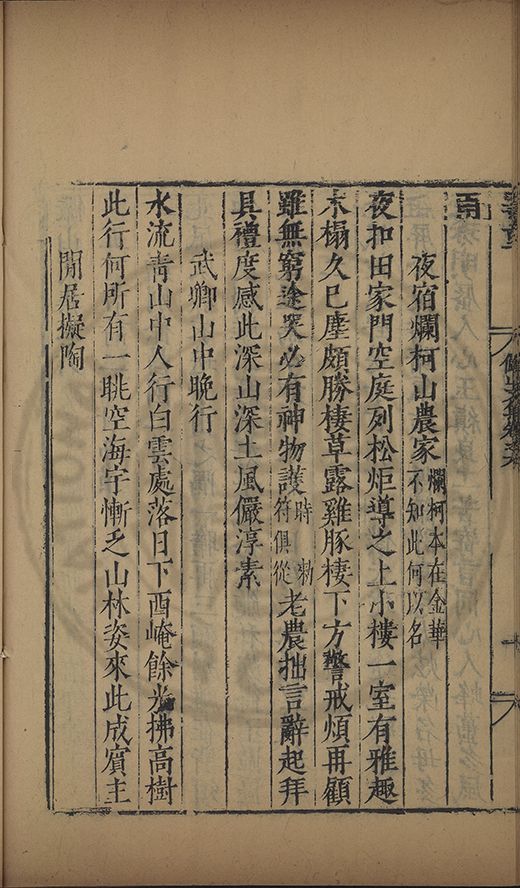 雨
夜宿爛柯山農家爛柯本在金華不知此何以名
夜扣田家門空庭列松炬導之上小樓一室有雅趣
木榻久已塵頗勝棲草露雞豚棲下方警戒煩再顧
雖無窮途哭必有神物護時勑符俱從老農拙言辭起拜
具禮度感此深山深土風儼淳素
武卿山中晚行
水流青山中人行白雲處落日下酉崦餘光拂高樹
此行何所有一眺空海宇慚乏山林姿來此成賓主
閒居擬陶